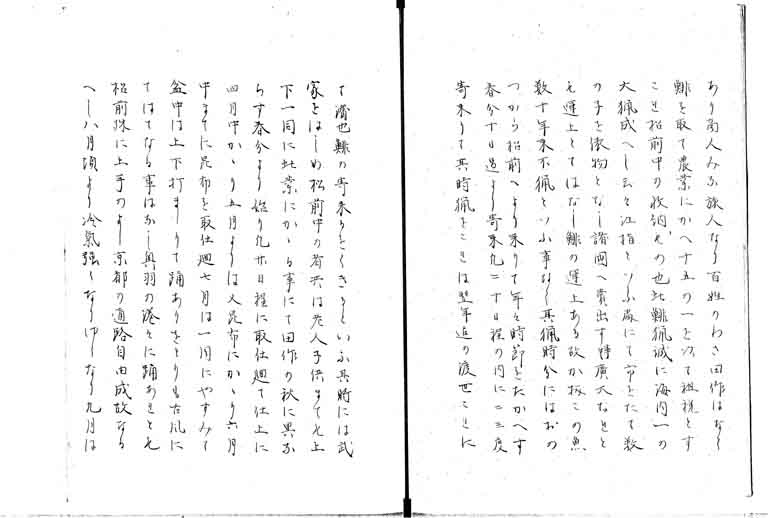 あり商人みな旅人なり百姓のわさ田作はなく
鯡を取て農業にかへ十五の一を以て租税とす
こ松前中の收納の也此鯡猟誠に海内一の
大猟成へし云々江指といふ處にて市をたて数
の子を俵物となし諸国へ賣出す時廣大なれと
も運上とてはなし鯡の運上ある故か扨この魚
数十年来不猟といふ事なし其猟時分にはおの
つから松前へより来りて年々時節をたかへす
春分十日過より寄来九二十日程の内に二三度
寄来りて其時猟をこは翌年迄の渡世ことに
て濟也鯡の寄来るをくきるといふ其時には武
家をはしめ松前中の者共は老人子供まても上
下一同に此業にかゝる事にて田作の秋に異な
らす春分より始り九廿日程に取仕廻て仕上に
四月中かゝり五月よりは又昆布にかゝり六月
中まてに昆布を取仕廻七月は一同にやすみて
盆中は上下打ましりて踊ありをとりも古風に
てはてなる事はなし奥羽の港々に踊あれとも
松前殊に上手のよし京都の通路自由成故なる
へし八月頃より冷氣強くなりゆくなり九月は